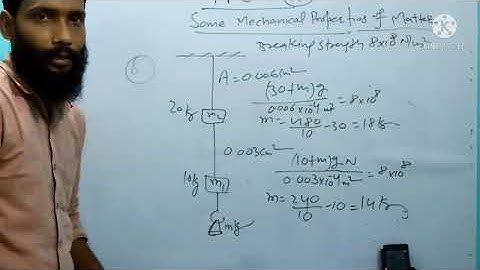 Some Mechanical Properties of Matter
Breaking strength 8x10⁸ N/m²
6
A = 0.006cm²
(30+m)g
0.006x10⁻⁴m² = 8x10⁸
20 kg m₂
m = 480
10 -30 = 18kg
0.003cm²
(10+m)g N
0.003x10⁻⁴m² = 8x10⁸
10kg m₁
m = 240
10 -10 = 14kg
m kg